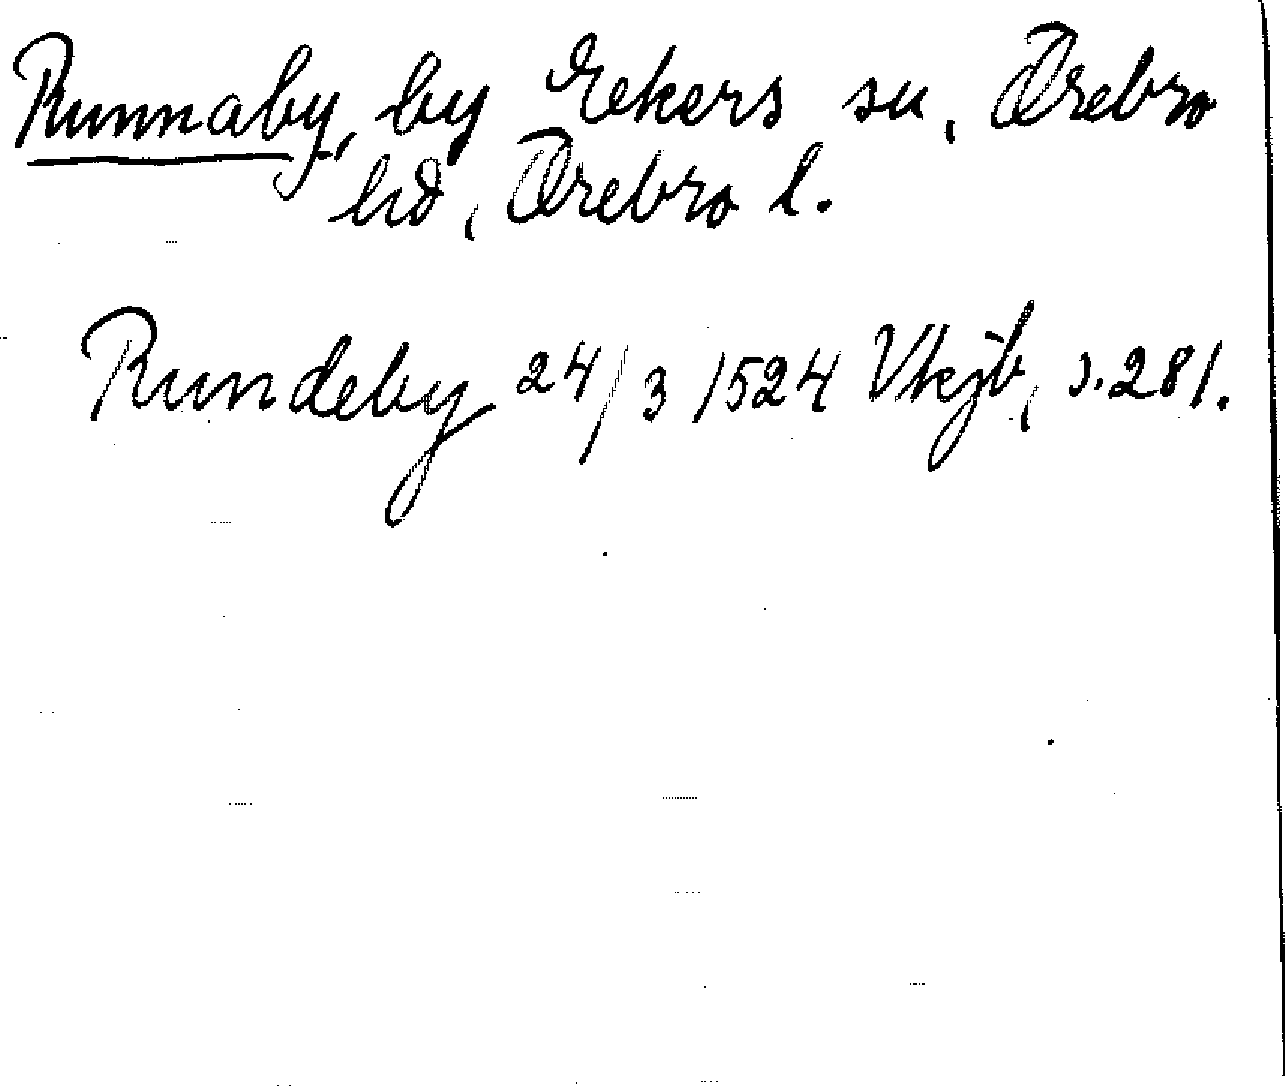 Runnaby, by Ekers sn, Örebro
hd, Örebro l.
Rundeby 24/3 1524 Vkjb, s. 281.